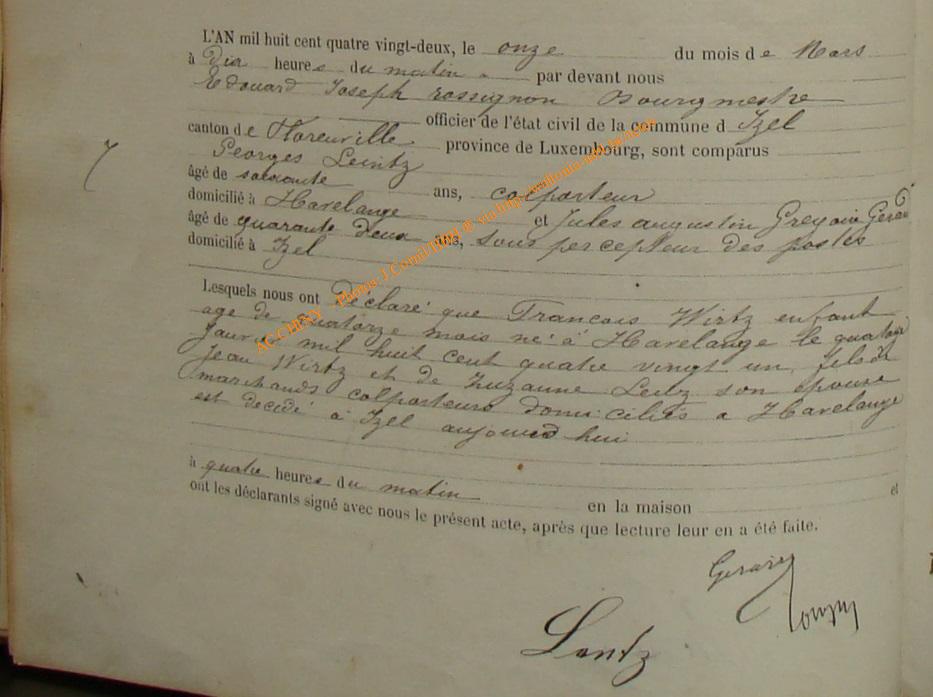 L'AN mil huit cent quatre vingt-deux, le onze du mois de Mars
à Dix heures du matin par devant nous
Edouard Joseph rossignon Bourgmestre
officier de l'état civil de la commune d Izel
canton de Florenville province de Luxembourg, sont comparus
Georges Leintz
âgé de soixante ans, colporteur
domicilié à Havelange et Jules augustin Gregoire Gerard
âgé de quarante deux ans, sous percepteur des postes
domicilié à Izel
Lesquels nous ont Déclaré que Francois Wirtz enfant
age de quatorze mois né à Havelange le quatorze
Janvier mil huit cent quatre vingt un, fils de
Jean Wirtz et de Zuzanne son épouse
marchands colporteurs domiciliés a Havelange
est decédé à Izel aujourd hui
à quatre heures du matin en la maison et
ont les déclarants signé avec nous le présent acte, après que lecture leur en a été faite.
Gerard
Lentz
AC CHINY Photos J.Cornil